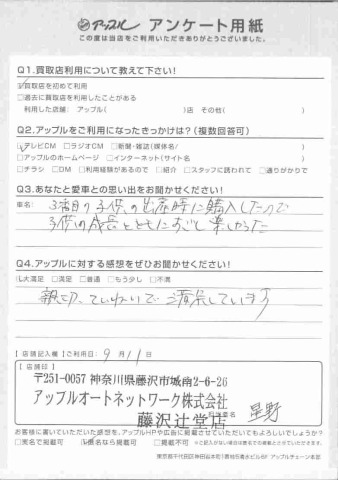 アップル アンケート用紙
この度は当店をご利用いただきありがとうございました。
Q1.買取店利用について教えて下さい!
☑買取店を初めて利用
□過去に買取店を利用したことがある
利用した店舗: アップル( )店 その他( )
Q2.アップルをご利用になったきっかけは?(複数回答可)
☑テレビCM □ラジオCM □新聞・雑誌(媒体名/ )
□アップルのホームページ □インターネット(サイト名 )
□チラシ □DM □利用経験があるので □紹介 □スタッフに誘われて □通りがかりで
Q3.あなたと愛車との思い出をお聞かせください!
車名:
3番目の子供の出産時に購入したので
子供の成長とともにすごし楽しかった
Q4.アップルに対する感想をぜひお聞かせください!
☑大満足 □満足 □普通 □もう少し □不満
親切、ていねいで満足しています
【店舗記入欄】ご利用日:9月11日
【店舗印】
〒251-0057 神奈川県藤沢市城南2-6-26
アップルオートネットワーク株式会社
藤沢辻堂店
担当者名 星野
お客様に書いていただいた感想を、アップルHPや広告に掲載させていただいてもよろしいでしょうか?
□実名で掲載可 ☑匿名なら掲載可 □掲載不可 ※ご記入がない場合は匿名での掲載とさせていただきます。